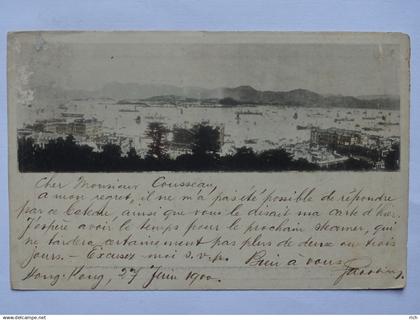 Cher Monsieur Cousseau,
a mon regret, il ne m'a pas été possible de répondre
par ce bateau, ainsi que vous le disait ma carte d'hier.
J'espère avoir le temps pour le prochain steamer, qui
ne tardera certainement pas plus de deux ou trois
jours. — Excusez moi s.v.p. Bien à vous
Hong-Kong, 27 Juin 1900